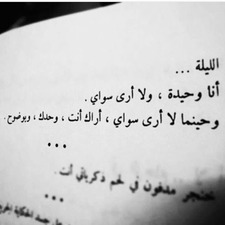 الليلة ...
أنا وحيدة ، ولا أرى سواي .
وحينما لا أرى سواي ، أراك أنت ، وحدك ، وبوضوح .
...
خنجر مدفون في لحم ذكرياتي أنت .
...